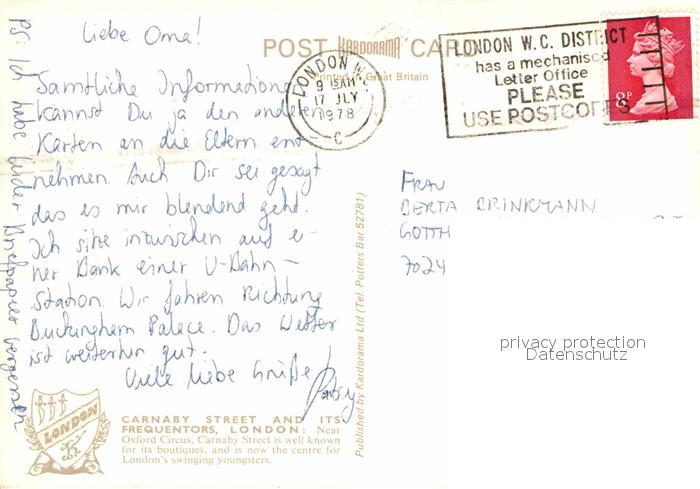 Liebe Oma!
Sämtliche Informationen
kannst Du ja den anderen
Karten an die Eltern ent-
nehmen. Auch Dir sei gesagt
das es mir blendend geht.
Ich sitze inzwischen auf ei-
ner Bank einer U-Bahn-
Station. Wir fahren Richtung
Buckingham Palace. Das Wetter
ist weiterhin gut.
Viele liebe Grüße
PS: Ich habe leider Briefpapier vergessen
POST KARDORAMA CARD
Printed in Great Britain
LONDON W.C.
9 15AM
17 JLY
1978
C
LONDON W.C. DISTRICT
has a mechanised
Letter Office
PLEASE
USE POSTCODES
8P
FRAU
BERTA BRINKMANN
7024
privacy protection
Datenschutz
Published by Kardorama Ltd (Tel. Potters Bar 52781)
LONDON
CARNABY STREET AND ITS
FREQUENTORS, LONDON: Near
Oxford Circus, Carnaby Street is well known
for its boutiques, and is now the centre for
London's swinging youngsters.